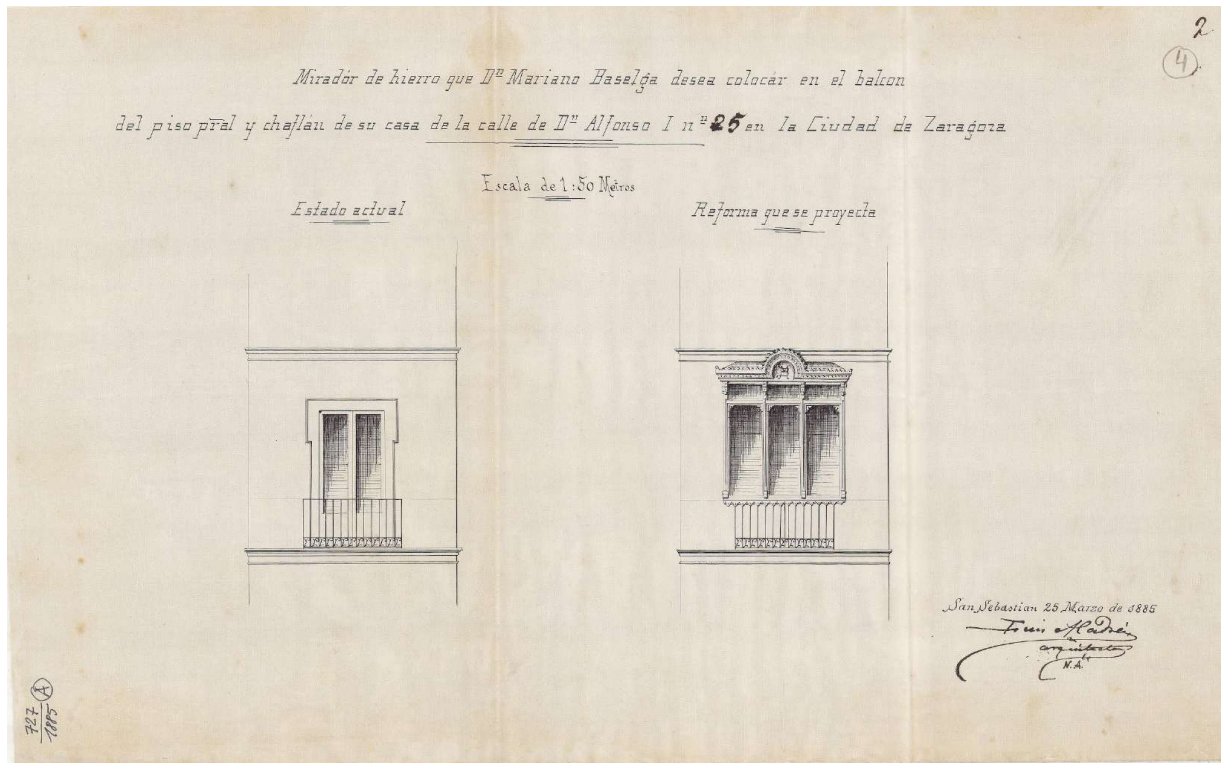 2
4
Mirador de hierro que Dⁿ Mariano Baselga desea colocár en el balcon
del piso pral y chaflán de su casa de la calle de Dⁿ Alfonso I nº 25 en la Ciudad de Zaragoza
Escala de 1:50 Metros
Estado actual
Reforma que se proyecta
San Sebastian 25 Marzo de 1885
arquitecto
N.A.
727 A
1885